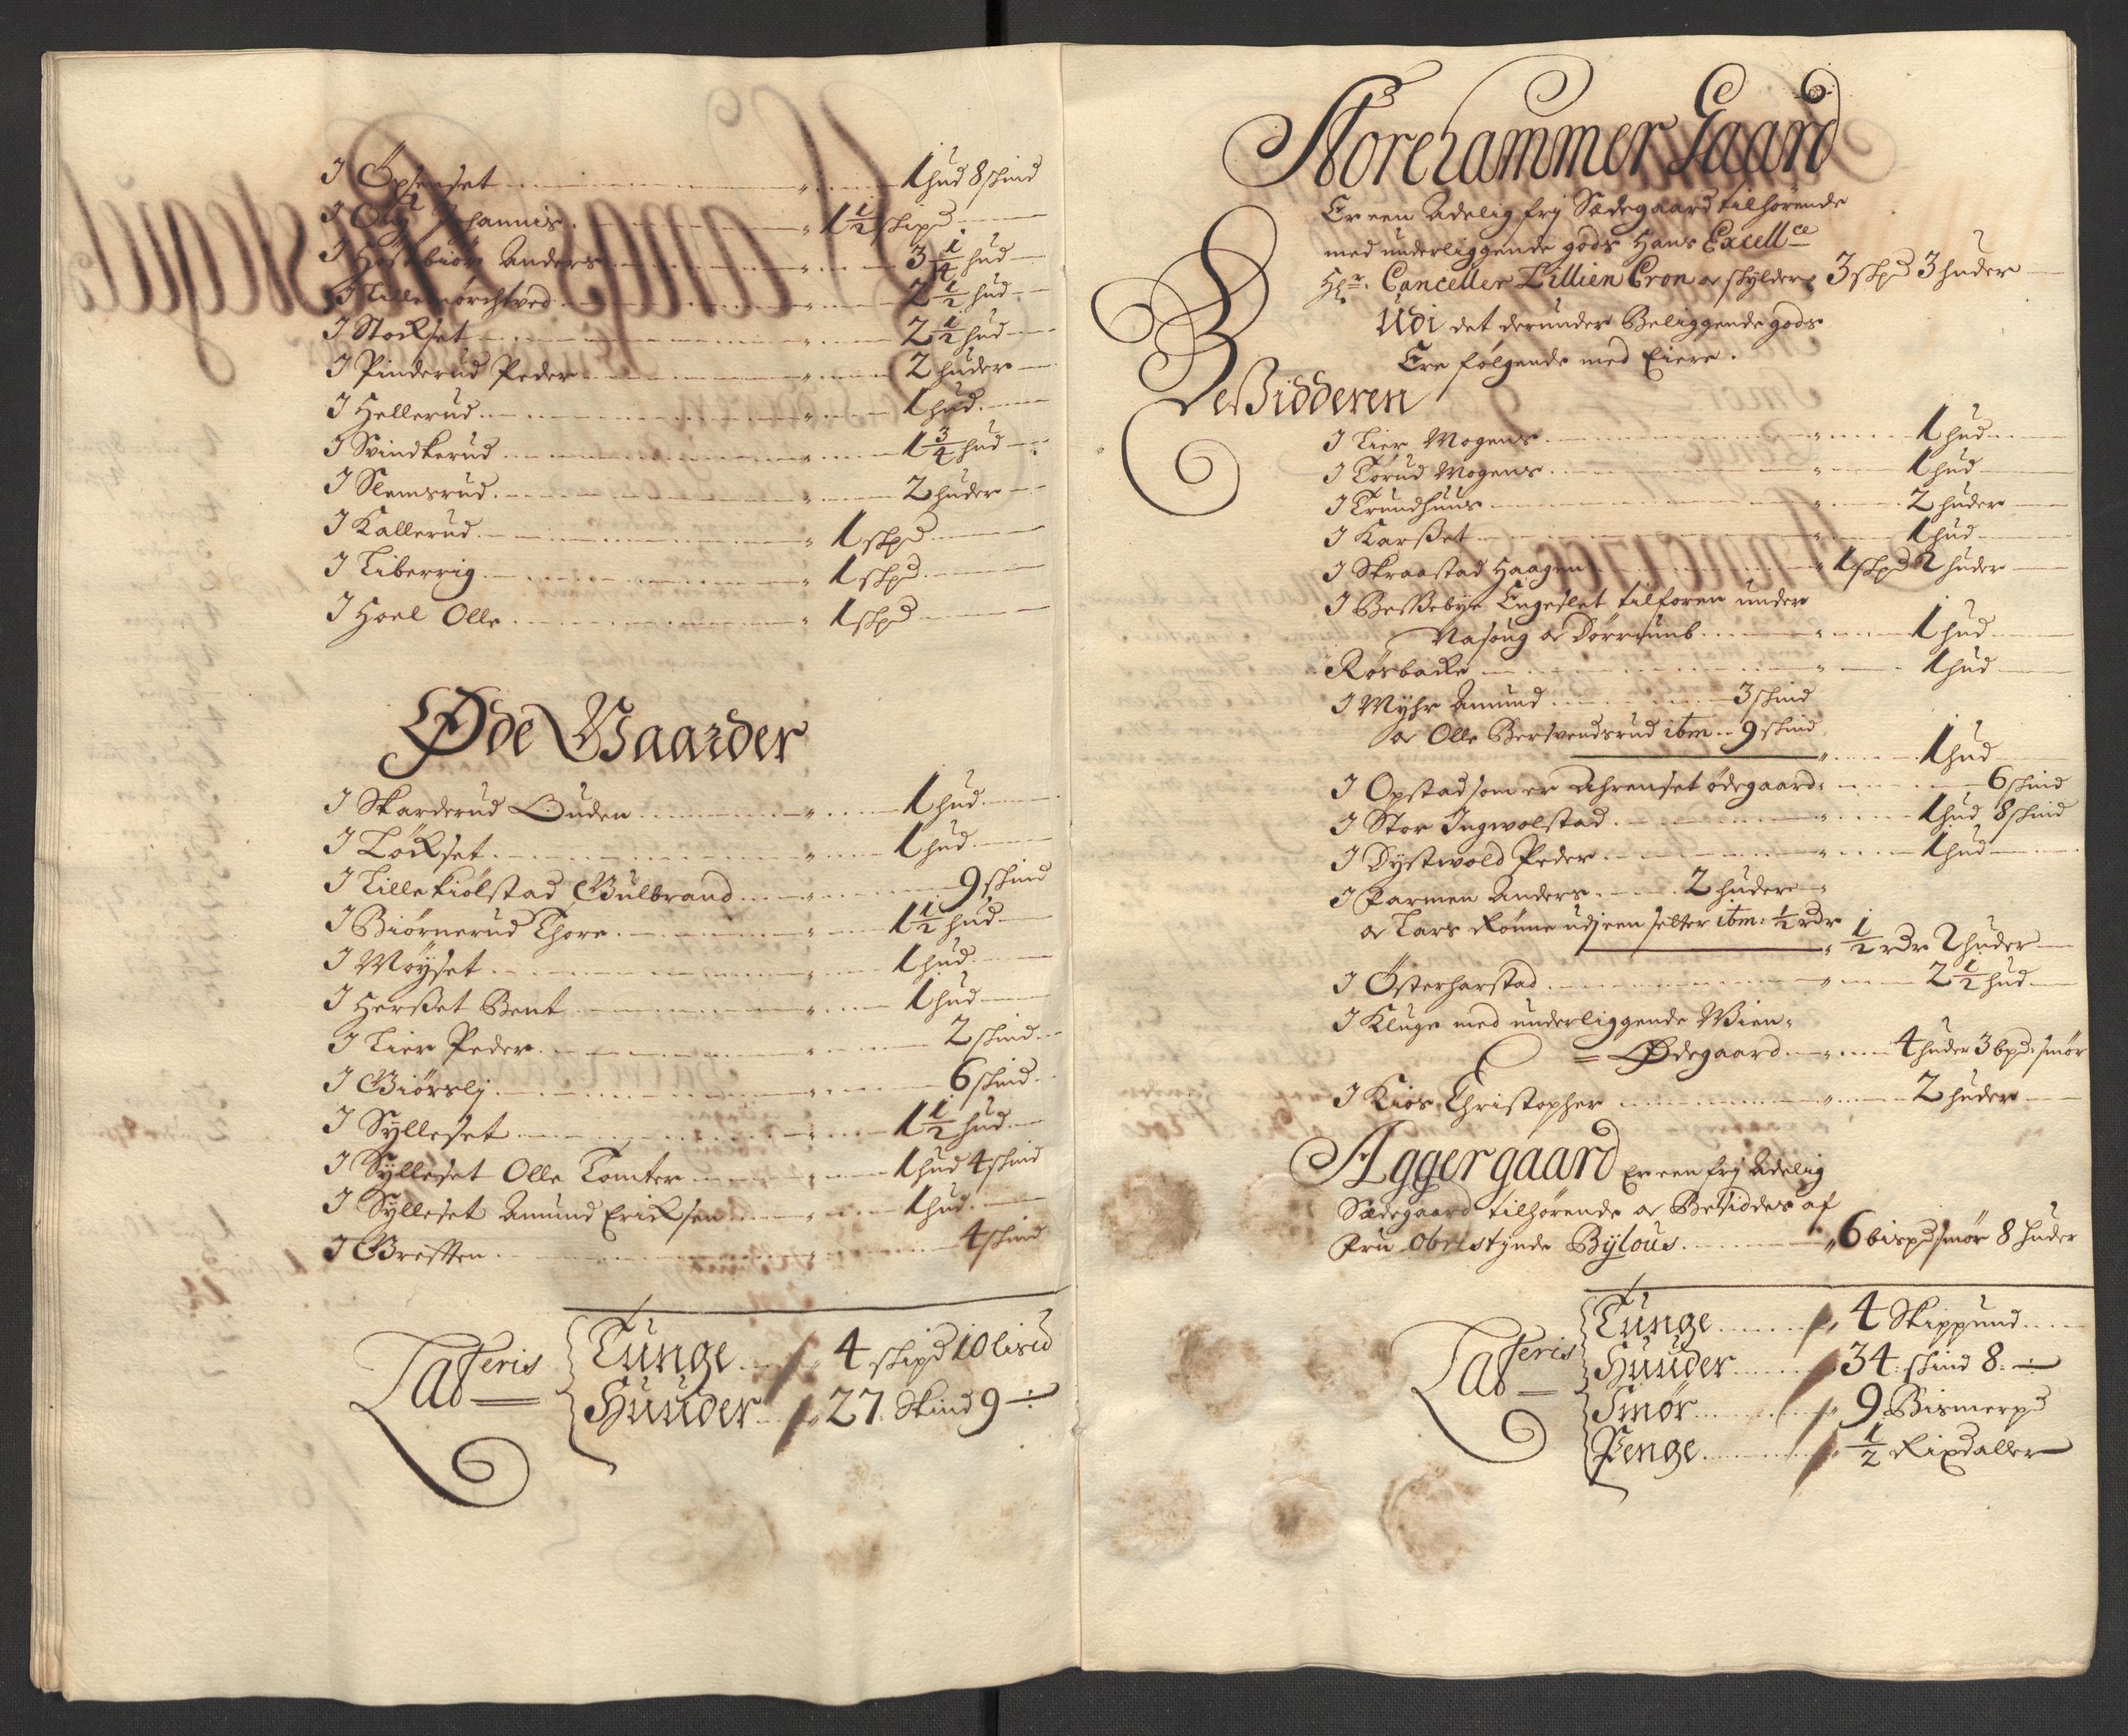 J Opsenset 1 hud 8 skind
J Johannis 1 1/2 skipd
J Høstebiør Anders 3 1/4 hud
J Lillenørchtved 2 1/2 hud
J Stochset 2 1/2 hud
J Pinderud Peder 2 huder
J Hellerud 1 hud
J Svindkerud 1 3/4 hud
J Slemsrud 2 huder
J Kallerud 1 skpd
J Liberrig 1 skpd
J Hoel Olle 1 skpd
Øde Gaarder
J Skarderud Guden 1 hud
J Løchset 1 hud
J Lille Kiølstad Gulbrand 9 skind
J Biørnerud Thore 1 1/2 hud
J Møÿset 1 hud
J Herßet Bent 1 hud
J Lier Peder 2 skind
J Giørslj 6 skind
J Sÿlleset 1 1/2 hud
J Sÿlleset Olle Tomter 1 hud 4 skind
J Sÿlleset Amund Erichsen 1 hud
J Gresten 4 skind
Lateris Tunge 4 skipd 10 lisld
Huuder 27. Skind 9 ÷
Norehammer Gaard
Er een Adelig frj Sædegaard tilhørende
med underliggende gods Hans Excellce
Hr. Canceller Lillien Cron og skylder 3 skpd 3 huder
Udi det derunder Beliggende gods
Ere følgende med Eiere.
Beßidderen
J Lier Mogens 1 hud
J Torud Mogens 1 hud
J Trundhuus 2 huder
J Karßet 1 hud
J Skraastad Haagen 1 skpd 2 huder
J Beßebye Engeslet tilforen under
Nasoug og Dørrumb 1 hud
Røsbache 1 hud
J Myhr Amund 3 skind
og Olle Berhvendsrud ibm 9 skind
1 hud
J Opstad som er Ahrenset ødegaard 6 skind
J Stor Ingwolstad 1 hud 8 skind
J Dystwold Peder 1 hud
J Farmen Anders 2 huder
og Lars Rønne udj een selter ibm: 1/2 rdr
1/2 rdr 2 huder
J Østerharstad 2 1/2 hud
J Kluge med underliggende Wien,
= Ødegaard 4 huder 3 bpd: smør
J Kios Christopher 2 huder
Aggergaard Er een frj Adelig
Sædegaard tilhørende og Besiddes af
Fru Obristjnde Bÿlous 6 bispd smør 8 huder
Lateris Tunge 4 Skippund
Huuder 34: skind 8. ÷
Smør 9 Bismerpd
Penge 1/2 Rixdaller